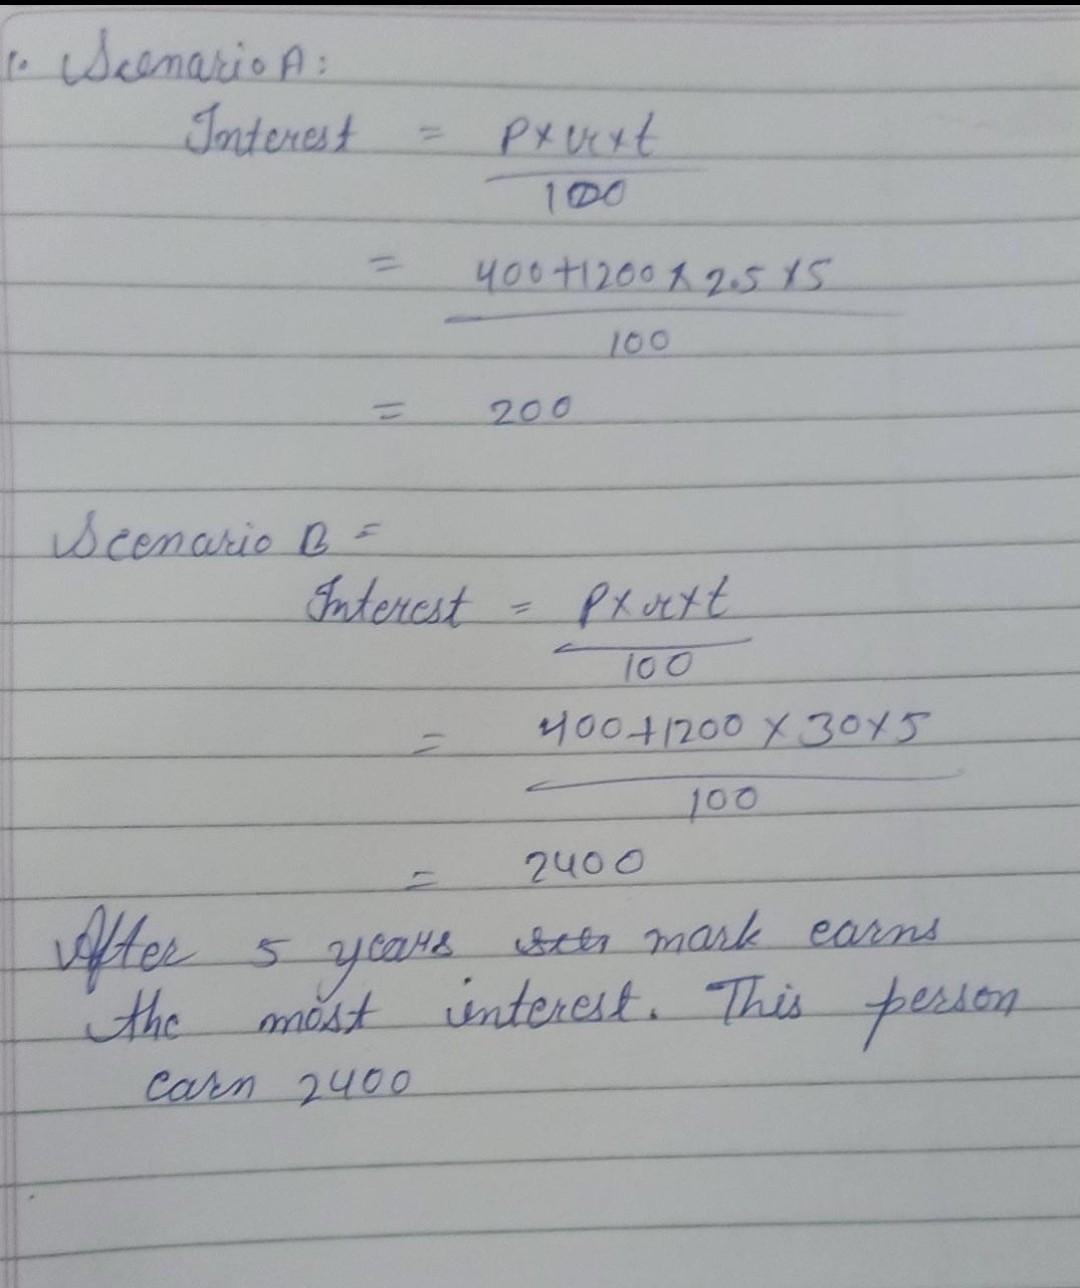 1. Scenario A:
Interest = P x r x t
100
= 400+1200 x 2.5 x 5
100
= 200
Scenario B =
Interest = P x r x t
100
= 400+1200 x 30 x 5
100
= 2400
After 5 years mark earns
the most interest. This person
earn 2400